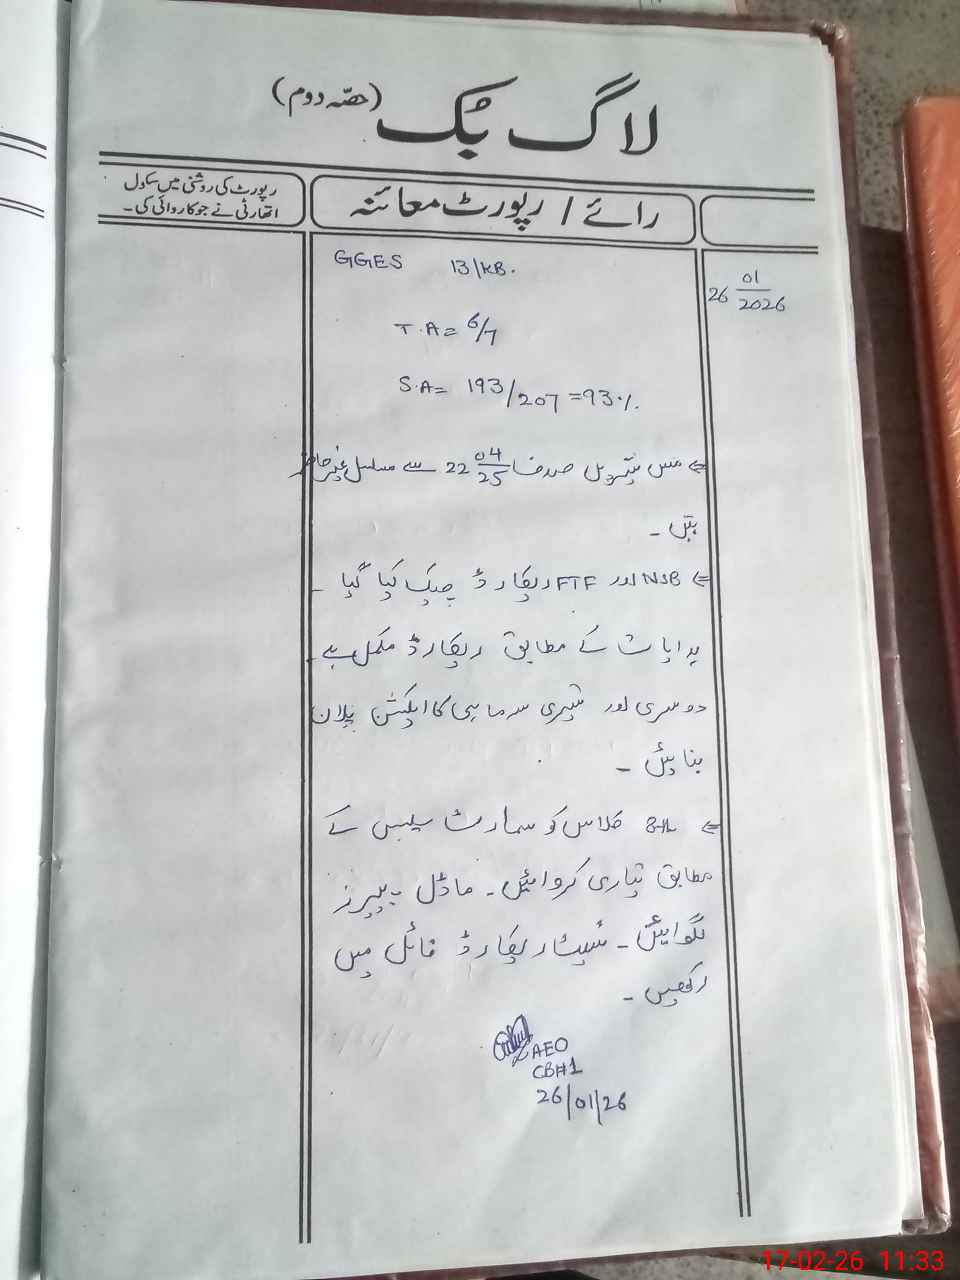 لاگ بُک (حصّہ دوم)
رائے / رپورٹ معائنہ
رپورٹ کی روشنی میں سکول
اتھارٹی نے جو کاروائی کی۔
26 01/2026
GGES 13/KB.
T.A = 6/7
S.A = 193/207 = 93%.
⇐ مس صدفا 22 04/25 سے مسلسل غیر حاضر
ہیں ۔
⇐ NSB اور FTF ریکارڈ چیک کیا گیا ۔
ہدایات کے مطابق ریکارڈ مکمل ہے ۔
دوسری اور تیسری سہ ماہی کا ایکشن پلان
بنائیں ۔
⇐ 8th کلاس کو سمارٹ سلیبس کے
مطابق تیاری کروائیں ۔ ماڈل پیپرز
لگوائیں ۔ ٹیسٹ ریکارڈ فائل میں
رکھیں ۔
AEO
CB#1
26/01/26
17-02-26 11:33